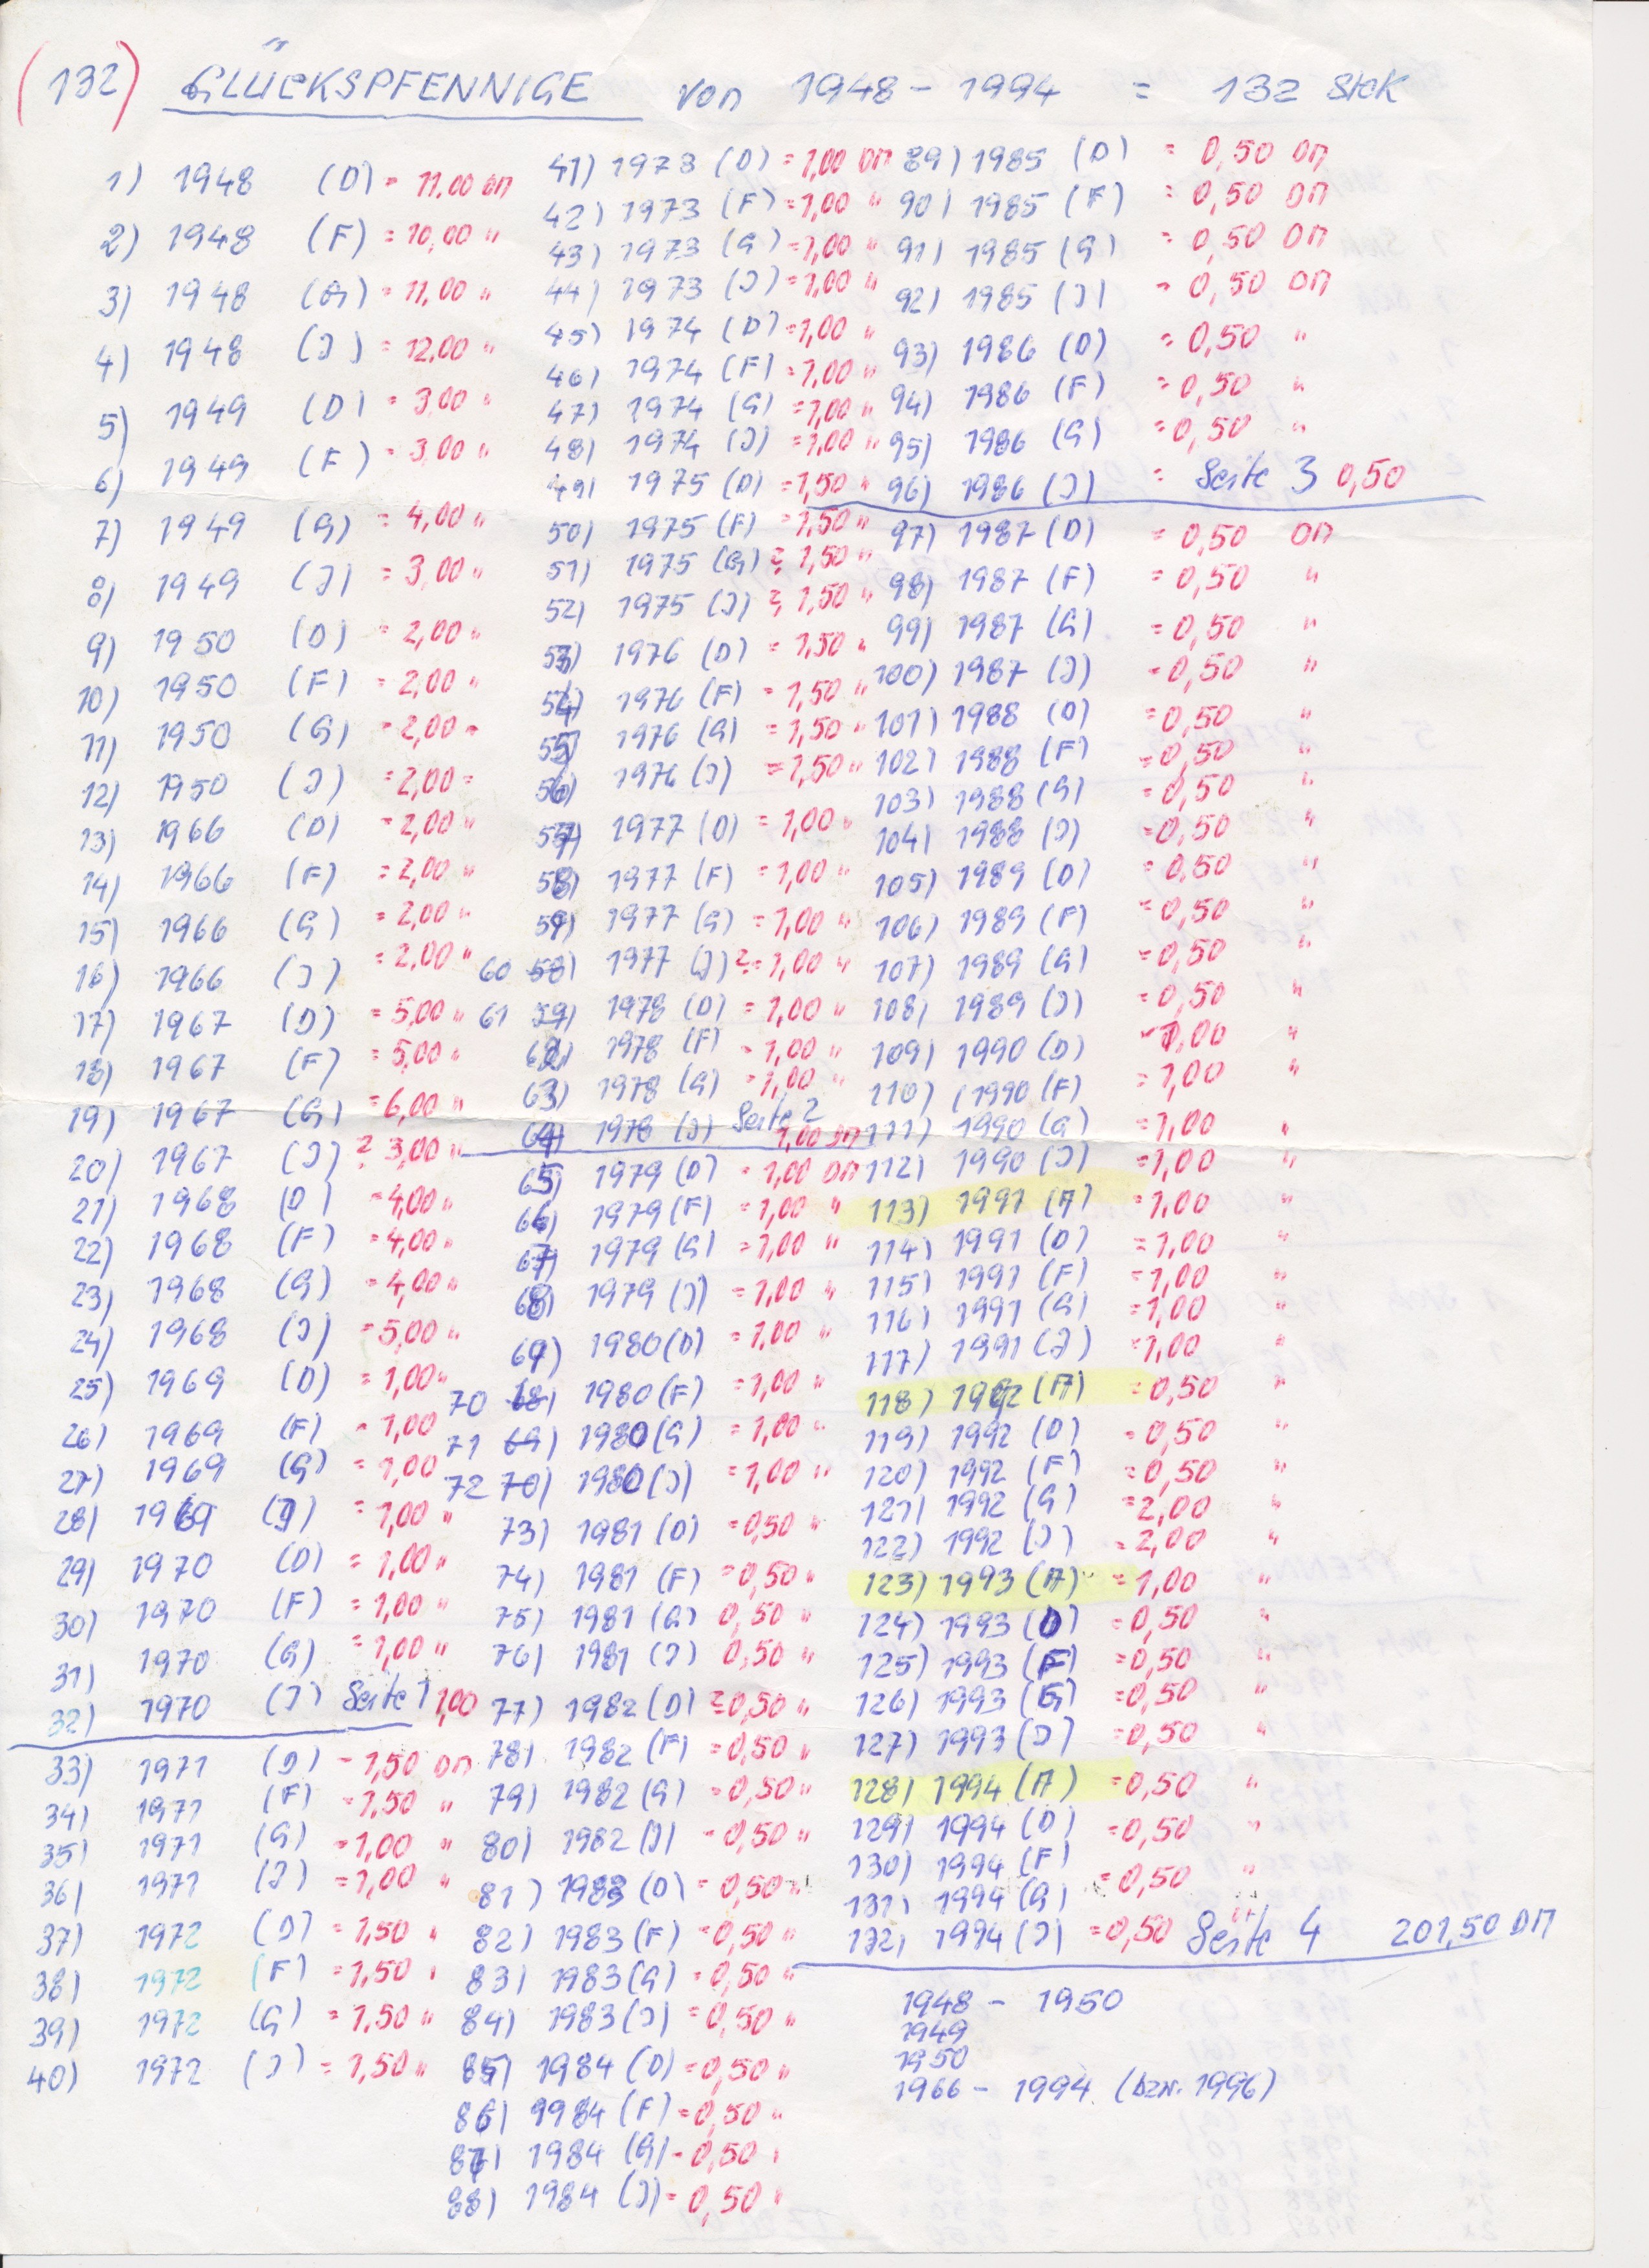 (132) GLÜCKSPFENNIGE von 1948 - 1994 = 132 Stck
1) 1948 (D) = 11,00 DM
2) 1948 (F) = 10,00 "
3) 1948 (G) = 11,00 "
4) 1948 (J) = 12,00 "
5) 1949 (D) = 3,00 "
6) 1949 (F) = 3,00 "
7) 1949 (G) = 4,00 "
8) 1949 (J) = 3,00 "
9) 1950 (D) = 2,00 "
10) 1950 (F) = 2,00 "
11) 1950 (G) = 2,00 "
12) 1950 (J) = 2,00 "
13) 1966 (D) = 2,00 "
14) 1966 (F) = 2,00 "
15) 1966 (G) = 2,00 "
16) 1966 (J) = 2,00 "
17) 1967 (D) = 5,00 "
18) 1967 (F) = 5,00 "
19) 1967 (G) = 6,00 "
20) 1967 (J) = 3,00 "
21) 1968 (D) = 4,00 "
22) 1968 (F) = 4,00 "
23) 1968 (G) = 4,00 "
24) 1968 (J) = 5,00 "
25) 1969 (D) = 1,00 "
26) 1969 (F) = 1,00
27) 1969 (G) = 1,00
28) 1969 (J) = 1,00 "
29) 1970 (D) = 1,00 "
30) 1970 (F) = 1,00 "
31) 1970 (G) = 1,00 "
32) 1970 (J) Seite 1 1,00
33) 1971 (D) = 1,50 DM
34) 1971 (F) = 1,50 "
35) 1971 (G) = 1,00 "
36) 1971 (J) = 1,00 "
37) 1972 (D) = 1,50 "
38) 1972 (F) = 1,50 "
39) 1972 (G) = 1,50 "
40) 1972 (J) = 1,50 "
41) 1973 (D) = 1,00 DM
42) 1973 (F) = 1,00 "
43) 1973 (G) = 1,00 "
44) 1973 (J) = 1,00 "
45) 1974 (D) = 1,00 "
46) 1974 (F) = 1,00 "
47) 1974 (G) = 1,00 "
48) 1974 (J) = 1,00 "
49) 1975 (D) = 1,50 "
50) 1975 (F) = 1,50 "
51) 1975 (G) = 1,50 "
52) 1975 (J) = 1,50 "
53) 1976 (D) = 1,50 "
54) 1976 (F) = 1,50 "
55) 1976 (G) = 1,50 "
56) 1976 (J) = 1,50 "
57) 1977 (D) = 1,00 "
58) 1977 (F) = 1,00 "
59) 1977 (G) = 1,00 "
60 58) 1977 (J) = 1,00 "
61 59) 1978 (D) = 1,00 "
62) 1978 (F) = 1,00 "
63) 1978 (G) = 1,00 "
64) 1978 (J) Seite 2 1,00 DM
65) 1979 (D) = 1,00 DM
66) 1979 (F) = 1,00 "
67) 1979 (G) = 1,00 "
68) 1979 (J) = 1,00 "
69) 1980 (D) = 1,00 "
70 68) 1980 (F) = 1,00 "
71 69) 1980 (G) = 1,00 "
72 70) 1980 (J) = 1,00 "
73) 1981 (D) = 0,50 "
74) 1981 (F) = 0,50 "
75) 1981 (G) 0,50 "
76) 1981 (J) 0,50 "
77) 1982 (D) = 0,50 "
78) 1982 (F) = 0,50 "
79) 1982 (G) = 0,50 "
80) 1982 (J) = 0,50 "
81) 1983 (D) = 0,50 "
82) 1983 (F) = 0,50 "
83) 1983 (G) = 0,50 "
84) 1983 (J) = 0,50 "
85) 1984 (D) = 0,50 "
86) 9984 (F) = 0,50 "
87) 1984 (G) = 0,50 "
88) 1984 (J) = 0,50 "
89) 1985 (D) = 0,50 DM
90) 1985 (F) = 0,50 DM
91) 1985 (G) = 0,50 DM
92) 1985 (J) = 0,50 DM
93) 1986 (D) = 0,50 "
94) 1986 (F) = 0,50 "
95) 1986 (G) = 0,50 "
96) 1986 (J) = Seite 3 0,50
97) 1987 (D) = 0,50 DM
98) 1987 (F) = 0,50 "
99) 1987 (G) = 0,50 "
100) 1987 (J) = 0,50 "
101) 1988 (D) = 0,50 "
102) 1988 (F) = 0,50 "
103) 1988 (G) = 0,50 "
104) 1988 (J) = 0,50 "
105) 1989 (D) = 0,50 "
106) 1989 (F) = 0,50 "
107) 1989 (G) = 0,50 "
108) 1989 (J) = 0,50 "
109) 1990 (D) = 1,00 "
110) 1990 (F) = 1,00 "
111) 1990 (G) = 1,00 "
112) 1990 (J) = 1,00 "
113) 1991 (A) = 1,00 "
114) 1991 (D) = 1,00 "
115) 1991 (F) = 1,00 "
116) 1991 (G) = 1,00 "
117) 1991 (J) = 1,00 "
118) 1992 (A) = 0,50 "
119) 1992 (D) = 0,50 "
120) 1992 (F) = 0,50 "
121) 1992 (G) = 2,00 "
122) 1992 (J) = 2,00 "
123) 1993 (A) = 1,00 "
124) 1993 (D) = 0,50 "
125) 1993 (F) = 0,50 "
126) 1993 (G) = 0,50 "
127) 1993 (J) = 0,50 "
128) 1994 (A) = 0,50 "
129) 1994 (D) = 0,50 "
130) 1994 (F) = 0,50 "
131) 1994 (G)
132) 1994 (J) = 0,50 Seite 4 201,50 DM
1948 - 1950
1949
1950
1966 - 1994 (bzw. 1996)